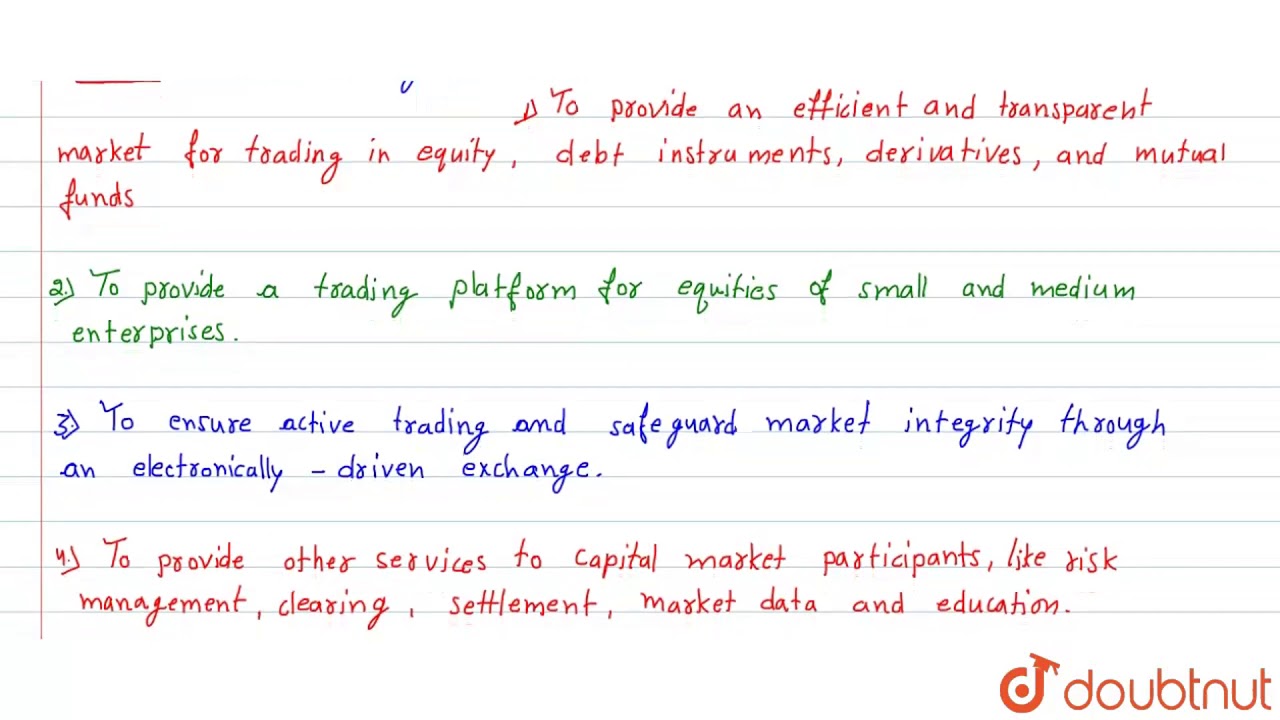 1) To provide an efficient and transparent
market for trading in equity, debt instruments, derivatives, and mutual
funds
2.) To provide a trading platform for equities of small and medium
enterprises.
3.) To ensure active trading and safeguard market integrity through
an electronically - driven exchange.
4.) To provide other services to capital market participants, like risk
management, clearing, settlement, market data and education.
doubtnut